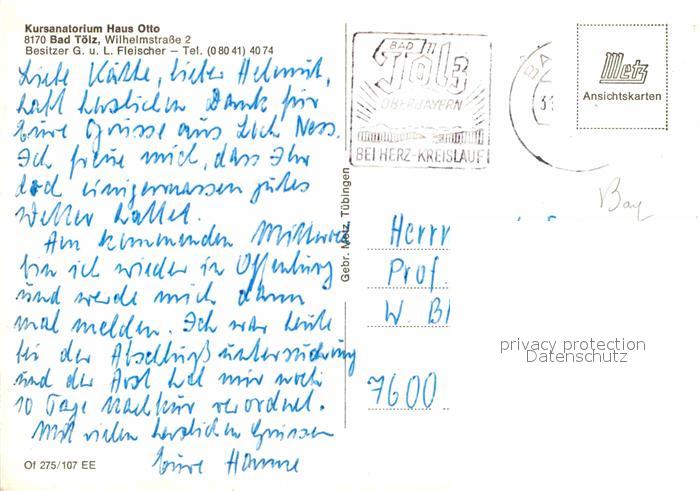 Kursanatorium Haus Otto
8170 Bad Tölz, Wilhelmstraße 2
Besitzer G. u. L. Fleischer – Tel. (0 80 41) 40 74
Liebe Käthe, lieber Helmut,
habt herzlichen Dank für
Eure Grüsse aus Loch Ness.
Ich freue mich, dass Ihr
doch einigermassen gutes
Wetter hattet.
Am kommenden Mittwoch
bin ich wieder in Offenburg
und werde mich dann
mal melden. Ich war heute
bei der Abschlußuntersuchung
und der Arzt hat mir noch
10 Tage Nachkur verordnet.
Mit vielen herzlichen Grüssen
Eure Hanne
Of 275/107 EE
Gebr. Metz, Tübingen
BAD
Tölz
OBERBAYERN
BEI HERZ-KREISLAUF
Metz
Ansichtskarten
Bay
Herrn
Prof.
W. Bl
7600
privacy protection
Datenschutz